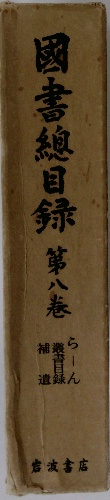 國書總目録
第八巻
らーん
叢書目録
補遺
岩波書店